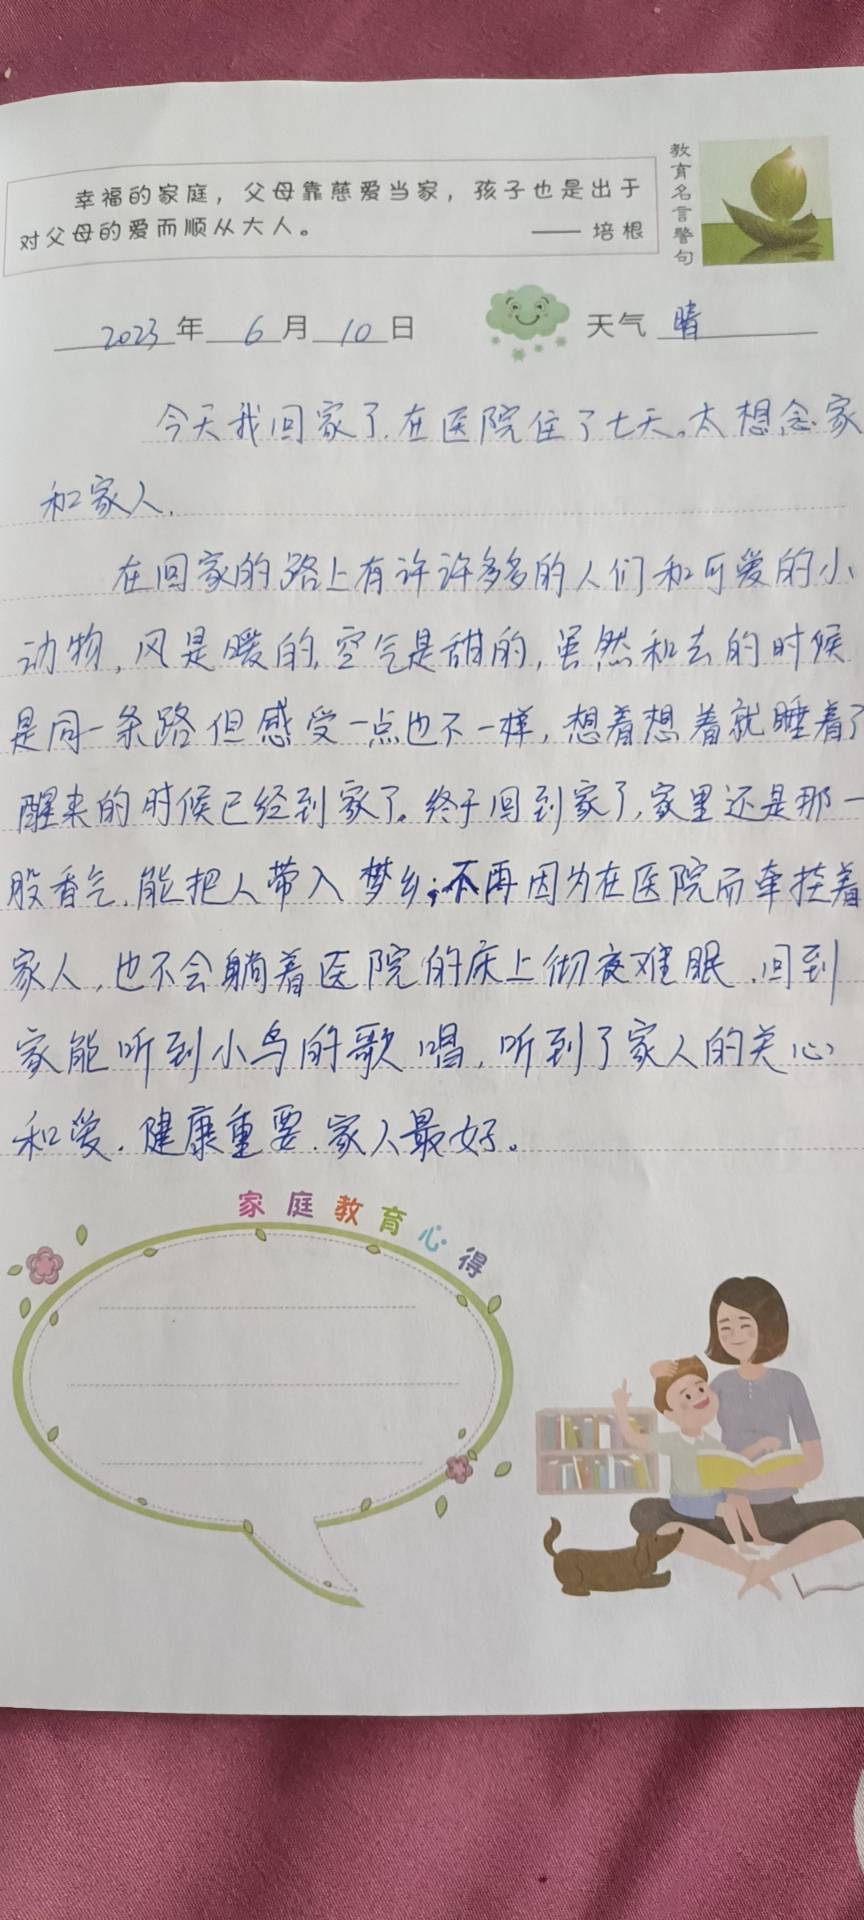 幸福的家庭，父母靠慈爱当家，孩子也是出于
对父母的爱而顺从大人。
—— 培根
教育名言警句
2023年 6月 10日 天气 晴
今天我回家了.在医院住了七天。太想念家
和家人.
在回家的路上有许许多多的人们和可爱的小
动物,风是暖的,空气是甜的,虽然和去的时候
是同一条路但感受一点也不一样,想着想着就睡着了
醒来的时候已经到家了。终于回到家了,家里还是那一
股香气.能把人带入梦乡;不再因为在医院而牵挂着
家人,也不会躺着医院的床上彻夜难眠.回到
家能听到小鸟的歌唱,听到了家人的关心
和爱.健康重要.家人最好。
家庭教育心得